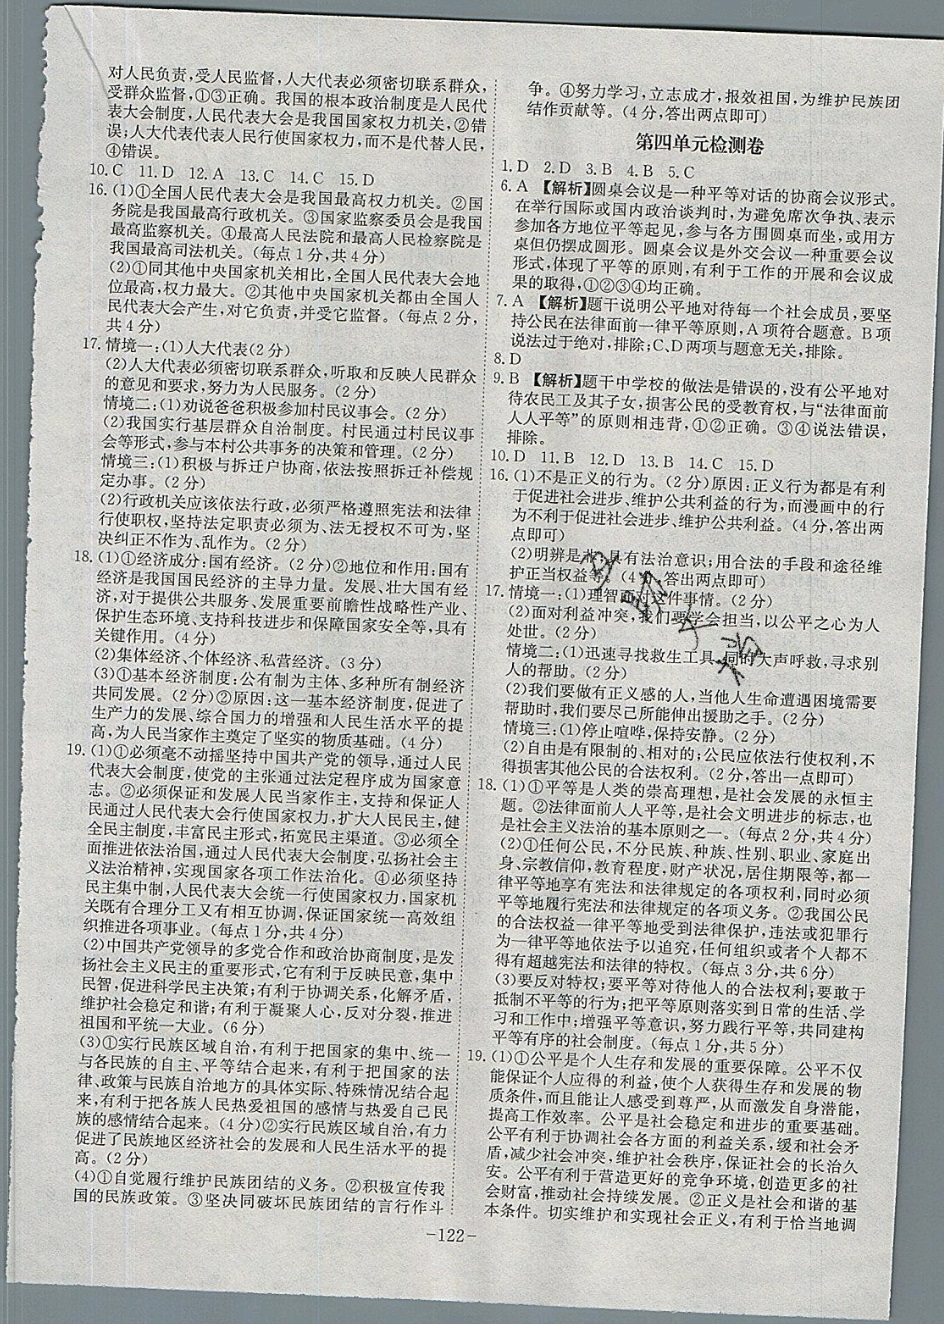 对人民负责,受人民监督,人大代表必须密切联系群众,
受群众监督,①③正确。我国的根本政治制度是人民代
表大会制度,人民代表大会是我国国家权力机关,②错
误;人大代表代表人民行使国家权力,而不是代替人民,
④错误。
10.C 11.D 12.A 13.C 14.C 15.D
16.(1)①全国人民代表大会是我国最高权力机关。②国
务院是我国最高行政机关。③国家监察委员会是我国
最高监察机关。④最高人民法院和最高人民检察院是
我国最高司法机关。(每点1分,共4分)
(2)①同其他中央国家机关相比,全国人民代表大会地
位最高,权力最大。②其他中央国家机关都由全国人
民代表大会产生,对它负责,并受它监督。(每点2分,
共4分)
17.情境一:(1)人大代表(2分)
(2)人大代表必须密切联系群众,听取和反映人民群众
的意见和要求,努力为人民服务。(2分)
情境二:(1)劝说爸爸积极参加村民议事会。(2分)
(2)我国实行基层群众自治制度。村民通过村民议事
会等形式,参与本村公共事务的决策和管理。(2分)
情境三:(1)积极与拆迁户协商,依法按照拆迁补偿规
定办事。(2分)
(2)行政机关应该依法行政,必须严格遵照宪法和法律
行使职权,坚持法定职责必须为、法无授权不可为,坚
决纠正不作为、乱作为。(2分)
18.(1)①经济成分:国有经济。(2分)②地位和作用:国有
经济是我国国民经济的主导力量。发展、壮大国有经
济,对于提供公共服务、发展重要前瞻性战略性产业、
保护生态环境、支持科技进步和保障国家安全等,具有
关键作用。(4分)
(2)集体经济、个体经济、私营经济。(3分)
(3)①基本经济制度:公有制为主体、多种所有制经济
共同发展。(2分)②原因:这一基本经济制度,促进了
生产力的发展、综合国力的增强和人民生活水平的提
高,为人民当家作主奠定了坚实的物质基础。(4分)
19.(1)①必须毫不动摇坚持中国共产党的领导,通过人民
代表大会制度,使党的主张通过法定程序成为国家意
志。②必须保证和发展人民当家作主,支持和保证人
民通过人民代表大会行使国家权力,扩大人民民主,健
全民主制度,丰富民主形式,拓宽民主渠道。③必须全
面推进依法治国,通过人民代表大会制度,弘扬社会主
义法治精神,实现国家各项工作法治化。④必须坚持
民主集中制,人民代表大会统一行使国家权力,国家机
关既有合理分工又有相互协调,保证国家统一高效组
织推进各项事业。(每点1分,共4分)
(2)中国共产党领导的多党合作和政治协商制度,是发
扬社会主义民主的重要形式,它有利于反映民意,集中
民智,促进科学民主决策;有利于协调关系,化解矛盾,
维护社会稳定和谐;有利于凝聚人心,反对分裂,推进
祖国和平统一大业。(6分)
(3)①实行民族区域自治,有利于把国家的集中、统一
与各民族的自主、平等结合起来,有利于把国家的法
律、政策与民族自治地方的具体实际、特殊情况结合起
来,有利于把各族人民热爱祖国的感情与热爱自己民
族的感情结合起来。(4分)②实行民族区域自治,有力
促进了民族地区经济社会的发展和人民生活水平的提
高。(2分)
(4)①自觉履行维护民族团结的义务。②积极宣传我
国的民族政策。③坚决同破坏民族团结的言行作斗
争。④努力学习,立志成才,报效祖国,为维护民族团
结作贡献等。(4分,答出两点即可)
第四单元检测卷
1.D 2.D 3.B 4.B 5.C
6.A 【解析】圆桌会议是一种平等对话的协商会议形式。
在举行国际或国内政治谈判时,为避免席次争执、表示
参加各方地位平等起见,参与各方围圆桌而坐,或用方
桌但仍摆成圆形。圆桌会议是外交会议一种重要会议
形式,体现了平等的原则,有利于工作的开展和会议成
果的取得,①②③④均正确。
7.A 【解析】题干说明公平地对待每一个社会成员,要坚
持公民在法律面前一律平等原则,A项符合题意。B项
说法过于绝对,排除;C、D两项与题意无关,排除。
8.D
9.B 【解析】题干中学校的做法是错误的,没有公平地对
待农民工及其子女,损害公民的受教育权,与“法律面前
人人平等”的原则相违背,①②正确。③④说法错误,
排除。
10.D 11.B 12.D 13.B 14.C 15.D
16.(1)不是正义的行为。(2分)原因:正义行为都是有利
于促进社会进步、维护公共利益的行为,而漫画中的行
为不利于促进社会进步、维护公共利益。(4分,答出两
点即可)
(2)明辨是 具有法治意识;用合法的手段和途径维
护正当权益 (4 答出两点即可)
17.情境一:(1)理智 件事情。(2分)
(2)面对利益冲突,我们要学会担当,以公平之心为人
处世。(2分)
情境二:(1)迅速寻找救生工具,同时大声呼救,寻求别
人的帮助。(2分)
(2)我们要做有正义感的人,当他人生命遭遇困境需要
帮助时,我们要尽己所能伸出援助之手。(2分)
情境三:(1)停止喧哗,保持安静。(2分)
(2)自由是有限制的、相对的;公民应依法行使权利,不
得损害其他公民的合法权利。(2分,答出一点即可)
18.(1)①平等是人类的崇高理想,是社会发展的永恒主
题。②法律面前人人平等,是社会文明进步的标志,也
是社会主义法治的基本原则之一。(每点2分,共4分)
(2)①任何公民,不分民族、种族、性别、职业、家庭出
身、宗教信仰,教育程度,财产状况,居住期限等,都一
律平等地享有宪法和法律规定的各项权利,同时必须
平等地履行宪法和法律规定的各项义务。②我国公民
的合法权益一律平等地受到法律保护,违法或犯罪行
为一律平等地依法予以追究,任何组织或者个人都不
得有超越宪法和法律的特权。(每点3分,共6分)
(3)要反对特权;要平等对待他人的合法权利;要敢于
抵制不平等的行为;把平等原则落实到日常的生活、学
习和工作中;增强平等意识,努力践行平等,共同建构
平等有序的社会制度。(每点1分,共5分)
19.(1)①公平是个人生存和发展的重要保障。公平不仅
能保证个人应得的利益,使个人获得生存和发展的物
质条件,而且能让人感受到尊严,从而激发自身潜能,
提高工作效率。公平是社会稳定和进步的重要基础。
公平有利于协调社会各方面的利益关系,缓和社会矛
盾,减少社会冲突,维护社会秩序,保证社会的长治久
安。公平有利于营造更好的竞争环境,创造更多的社
会财富,推动社会持续发展。②正义是社会和谐的基
本条件。切实维护和实现社会正义,有利于恰当地调
-122-